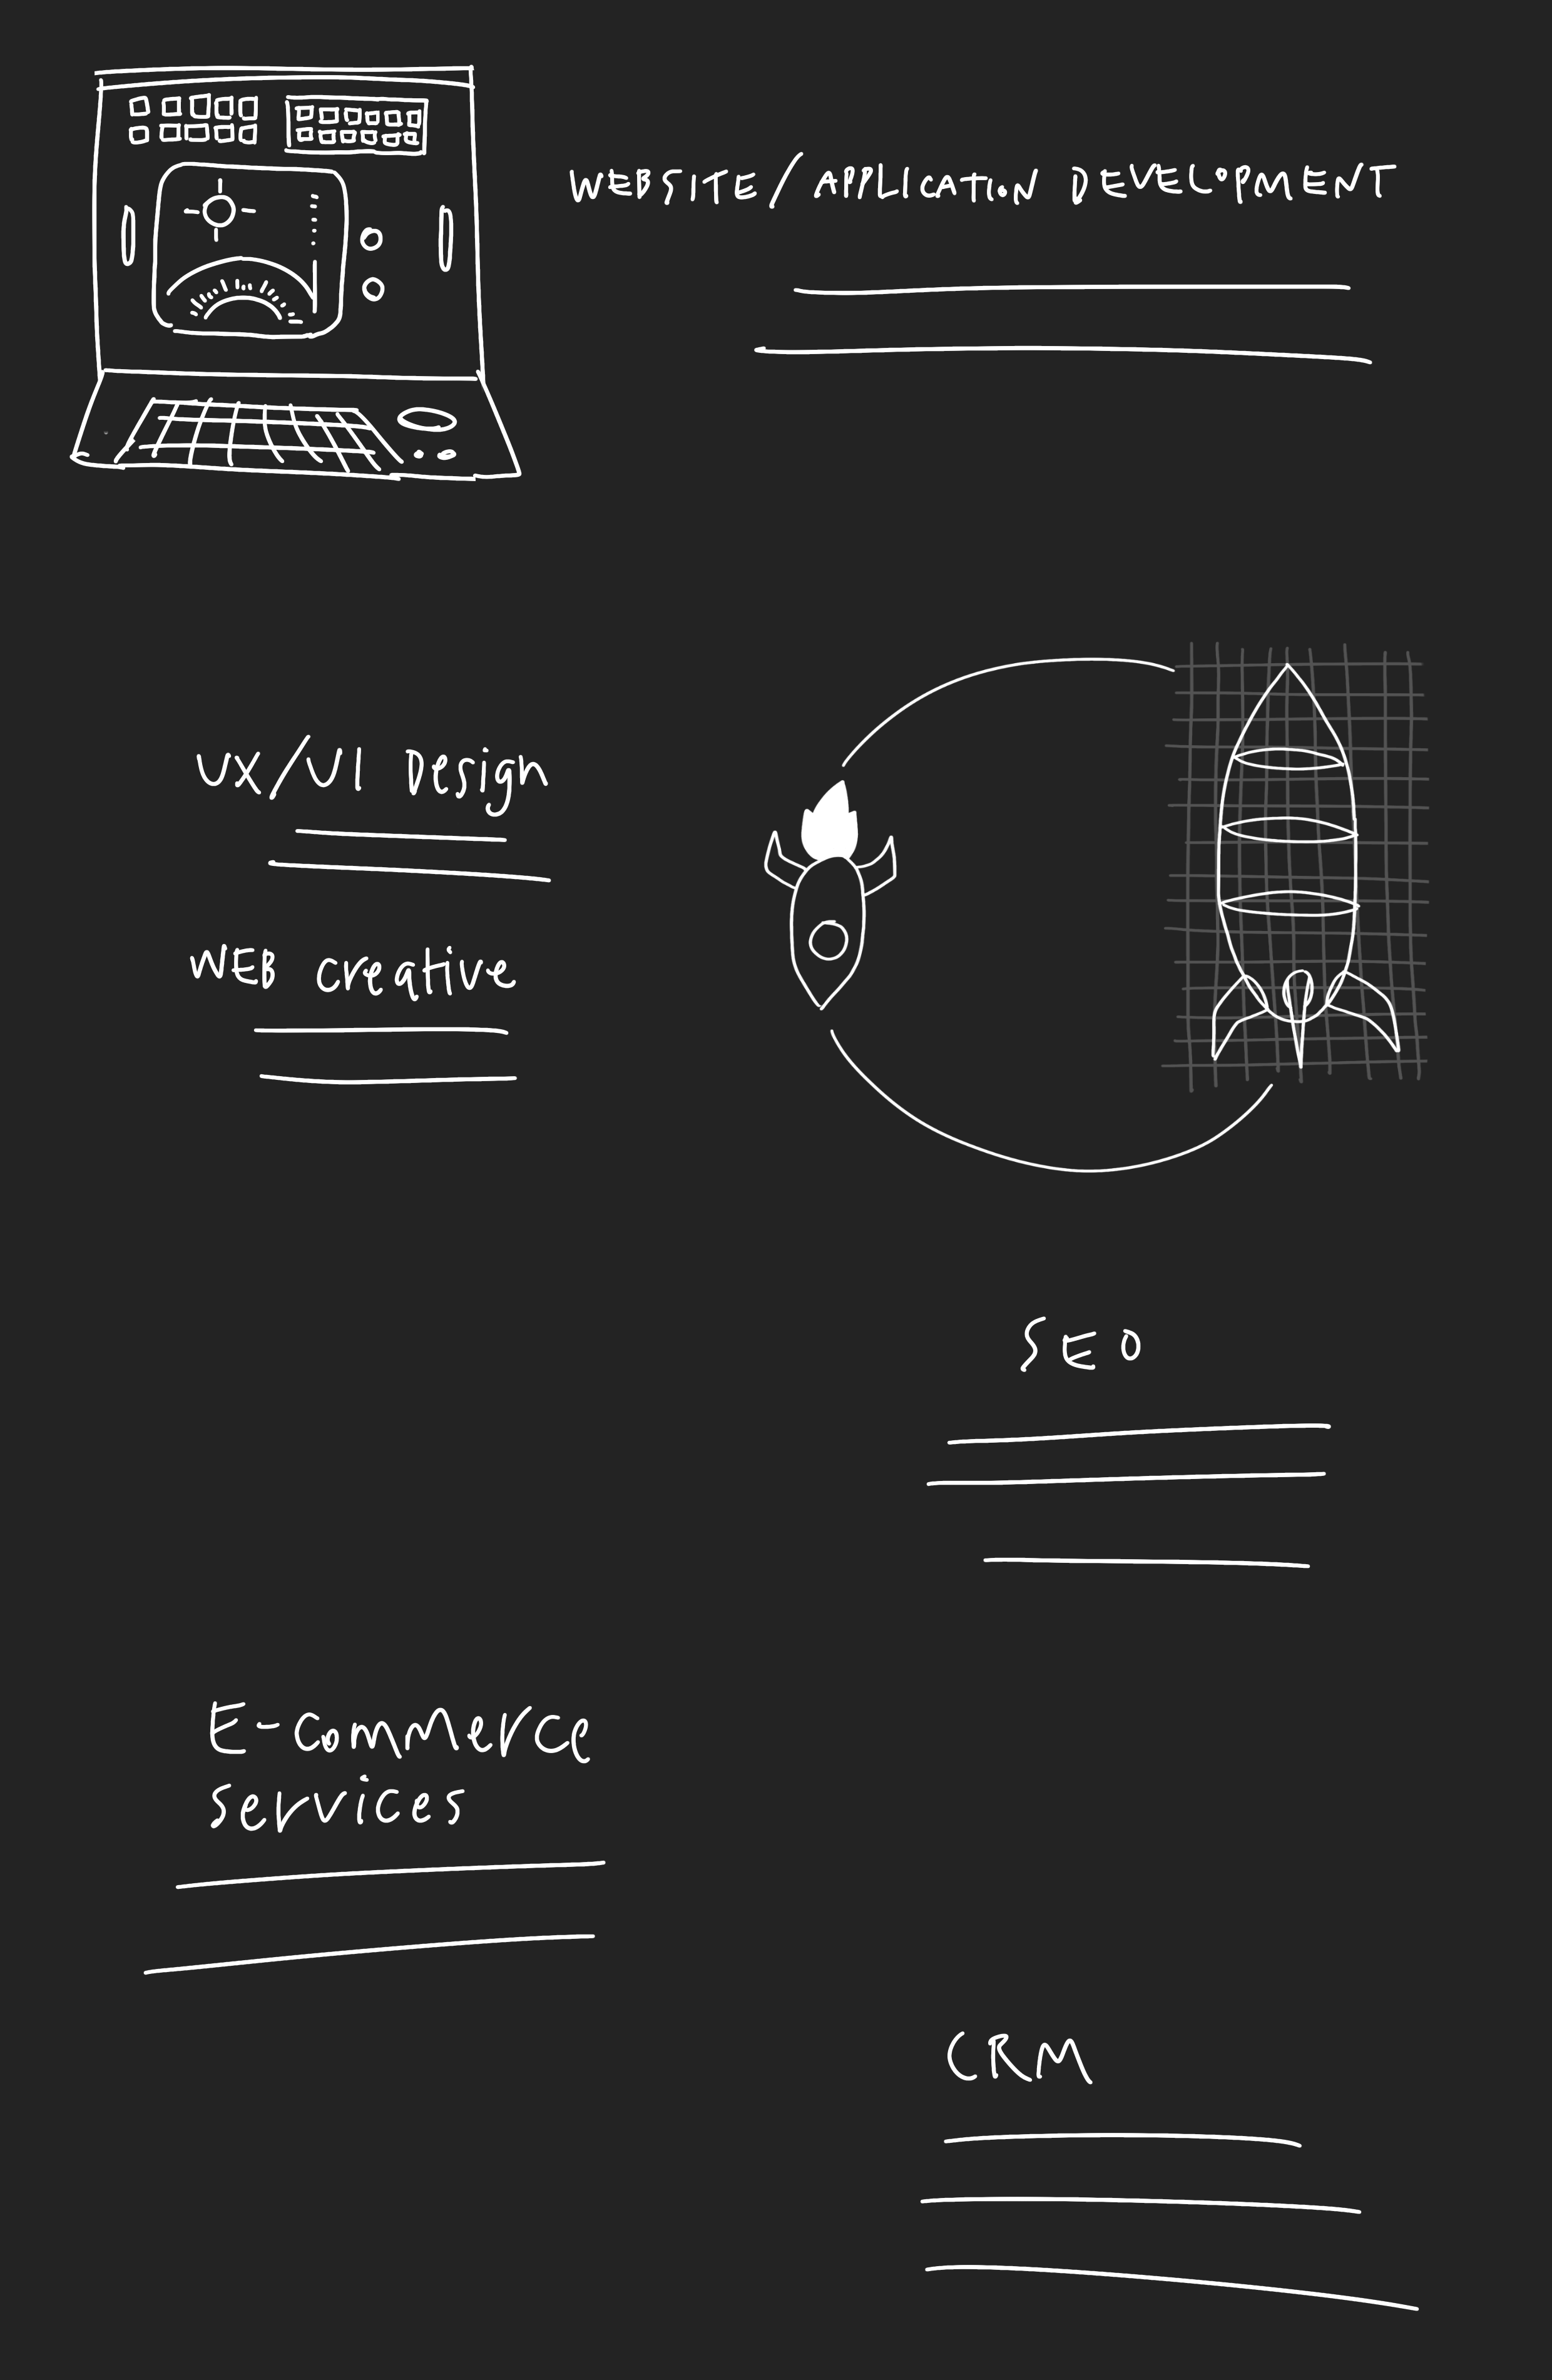 WEBSITE/APPLICATION DEVELOPMENT
UX/UI Design
WEB creative
SEO
E-Commerce
services
CRM